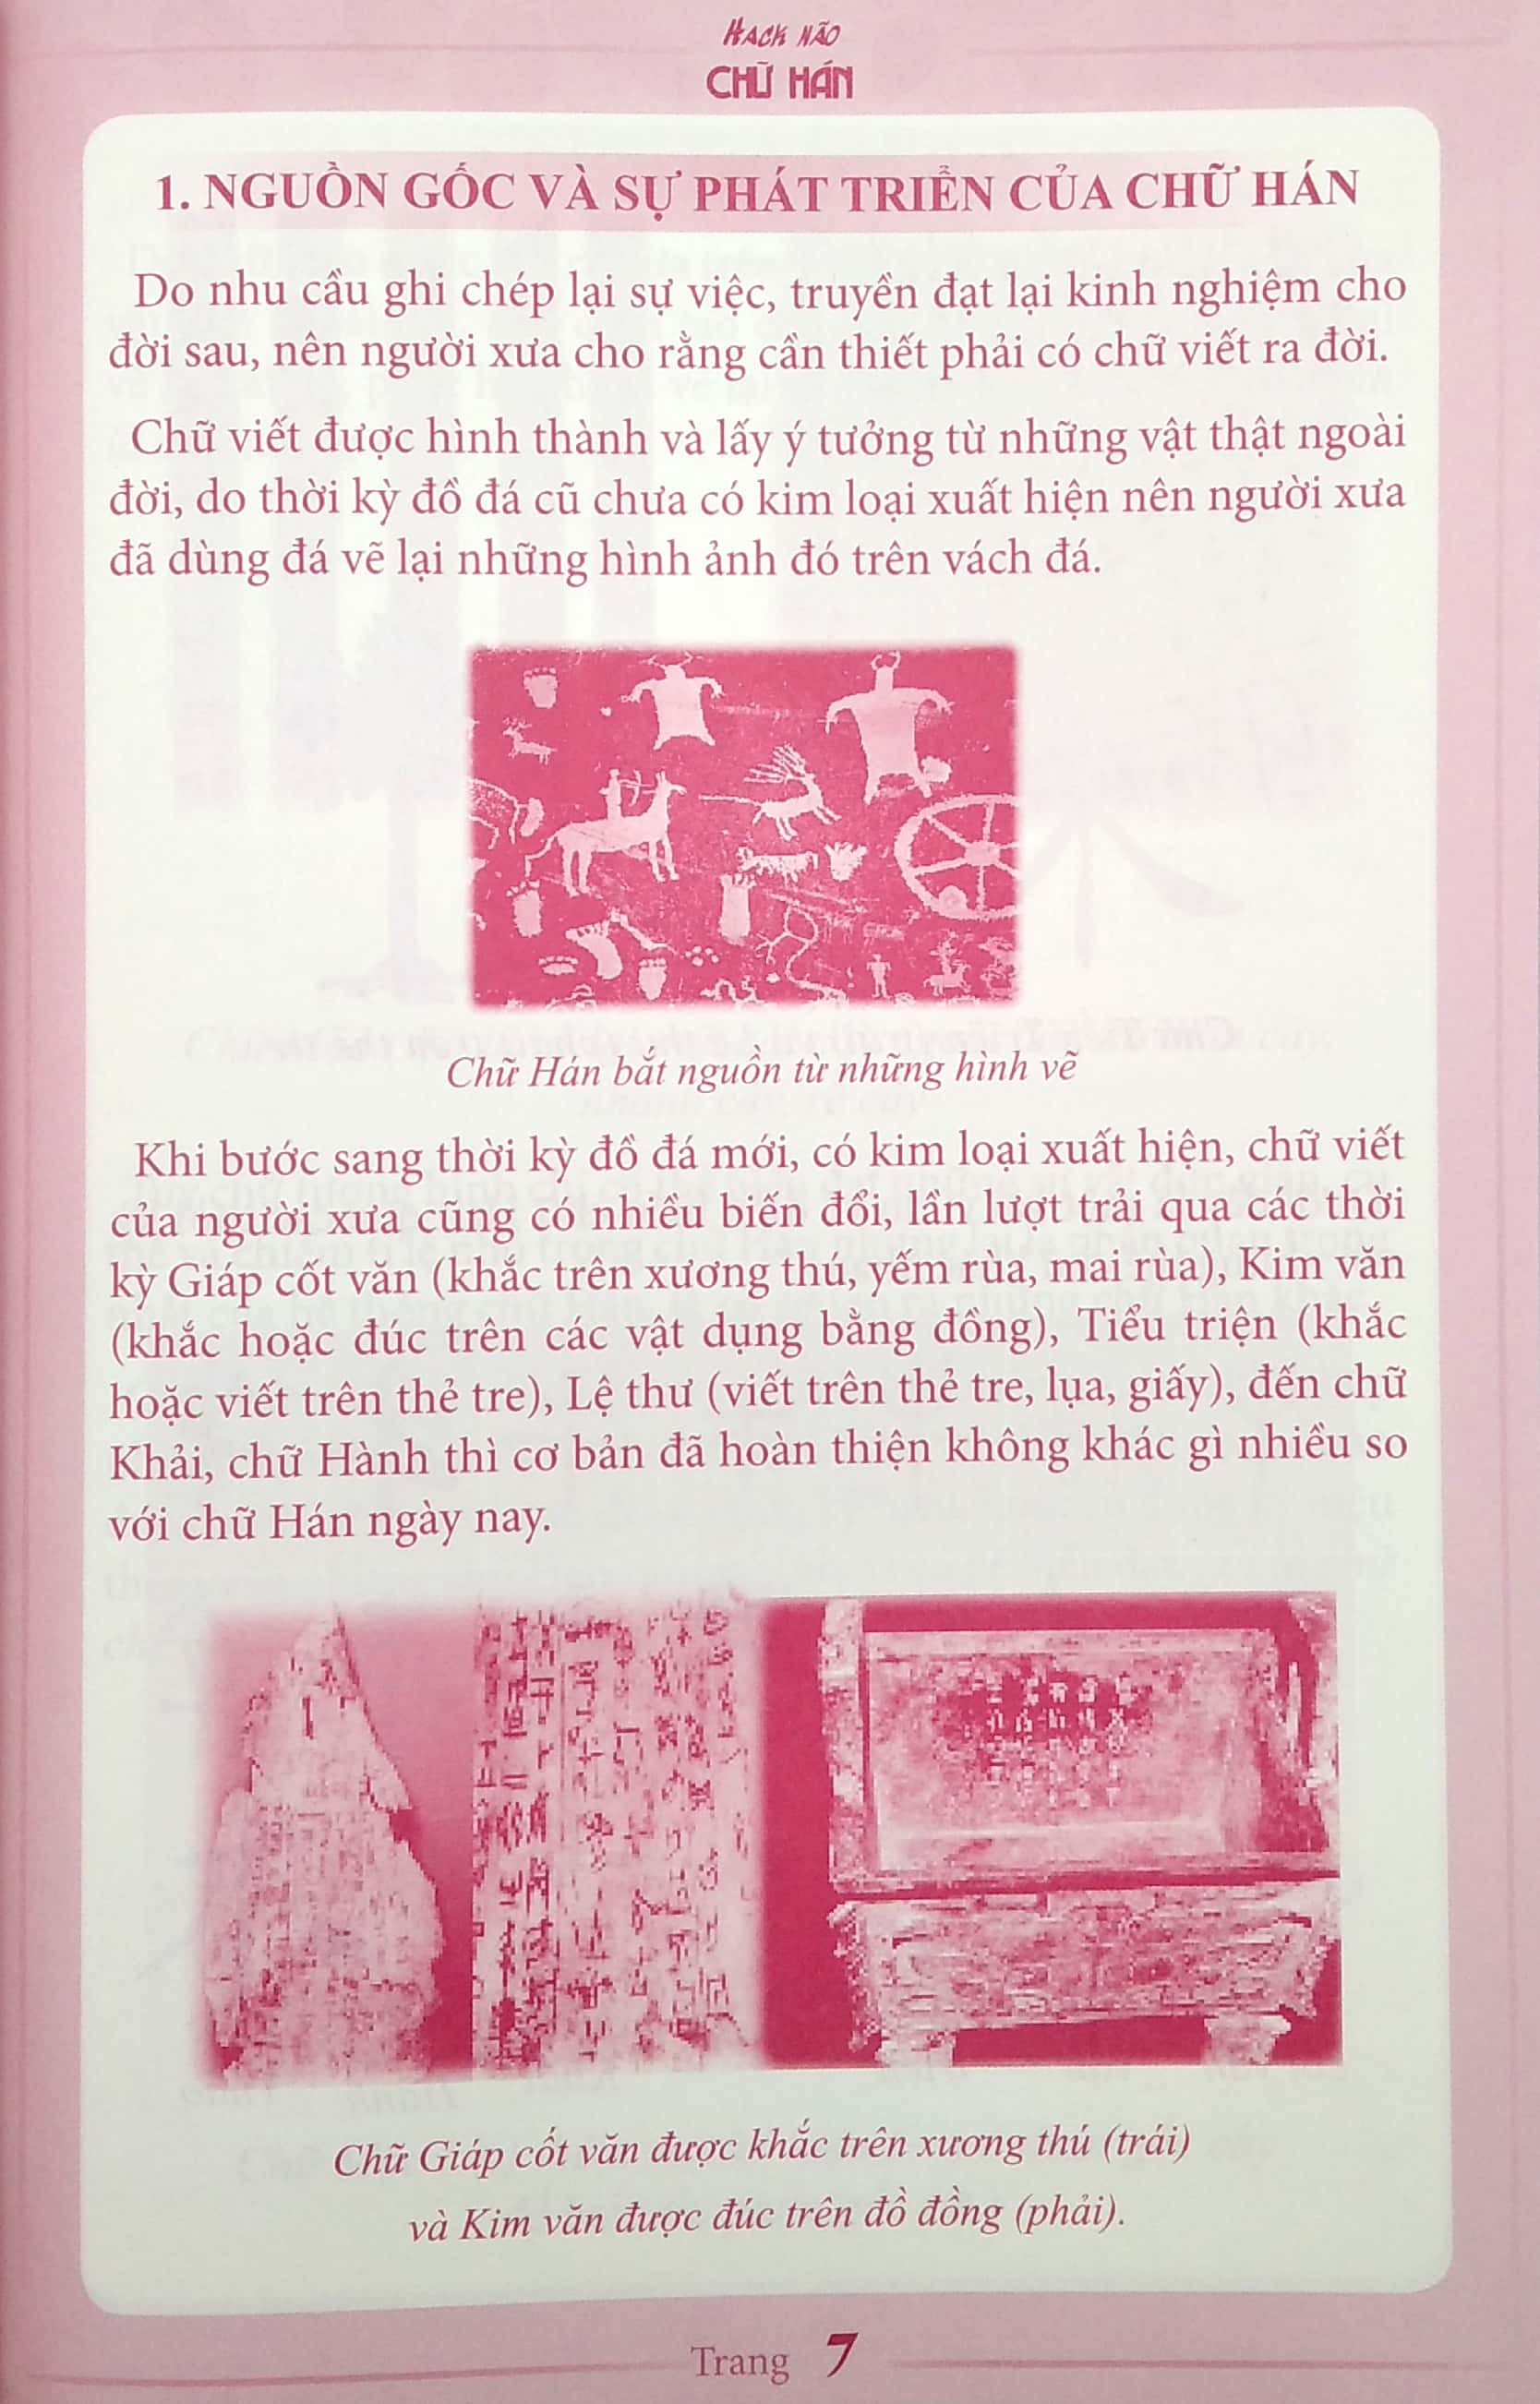 HACK NÃO
CHỮ HÁN
1. NGUỒN GỐC VÀ SỰ PHÁT TRIỂN CỦA CHỮ HÁN
Do nhu cầu ghi chép lại sự việc, truyền đạt lại kinh nghiệm cho
đời sau, nên người xưa cho rằng cần thiết phải có chữ viết ra đời.
Chữ viết được hình thành và lấy ý tưởng từ những vật thật ngoài
đời, do thời kỳ đồ đá cũ chưa có kim loại xuất hiện nên người xưa
đã dùng đá vẽ lại những hình ảnh đó trên vách đá.
Chữ Hán bắt nguồn từ những hình vẽ
Khi bước sang thời kỳ đồ đá mới, có kim loại xuất hiện, chữ viết
của người xưa cũng có nhiều biến đổi, lần lượt trải qua các thời
kỳ Giáp cốt văn (khắc trên xương thú, yếm rùa, mai rùa), Kim văn
(khắc hoặc đúc trên các vật dụng bằng đồng), Tiểu triện (khắc
hoặc viết trên thẻ tre), Lệ thư (viết trên thẻ tre, lụa, giấy), đến chữ
Khải, chữ Hành thì cơ bản đã hoàn thiện không khác gì nhiều so
với chữ Hán ngày nay.
Chữ Giáp cốt văn được khắc trên xương thú (trái)
và Kim văn được đúc trên đồ đồng (phải).
Trang 7